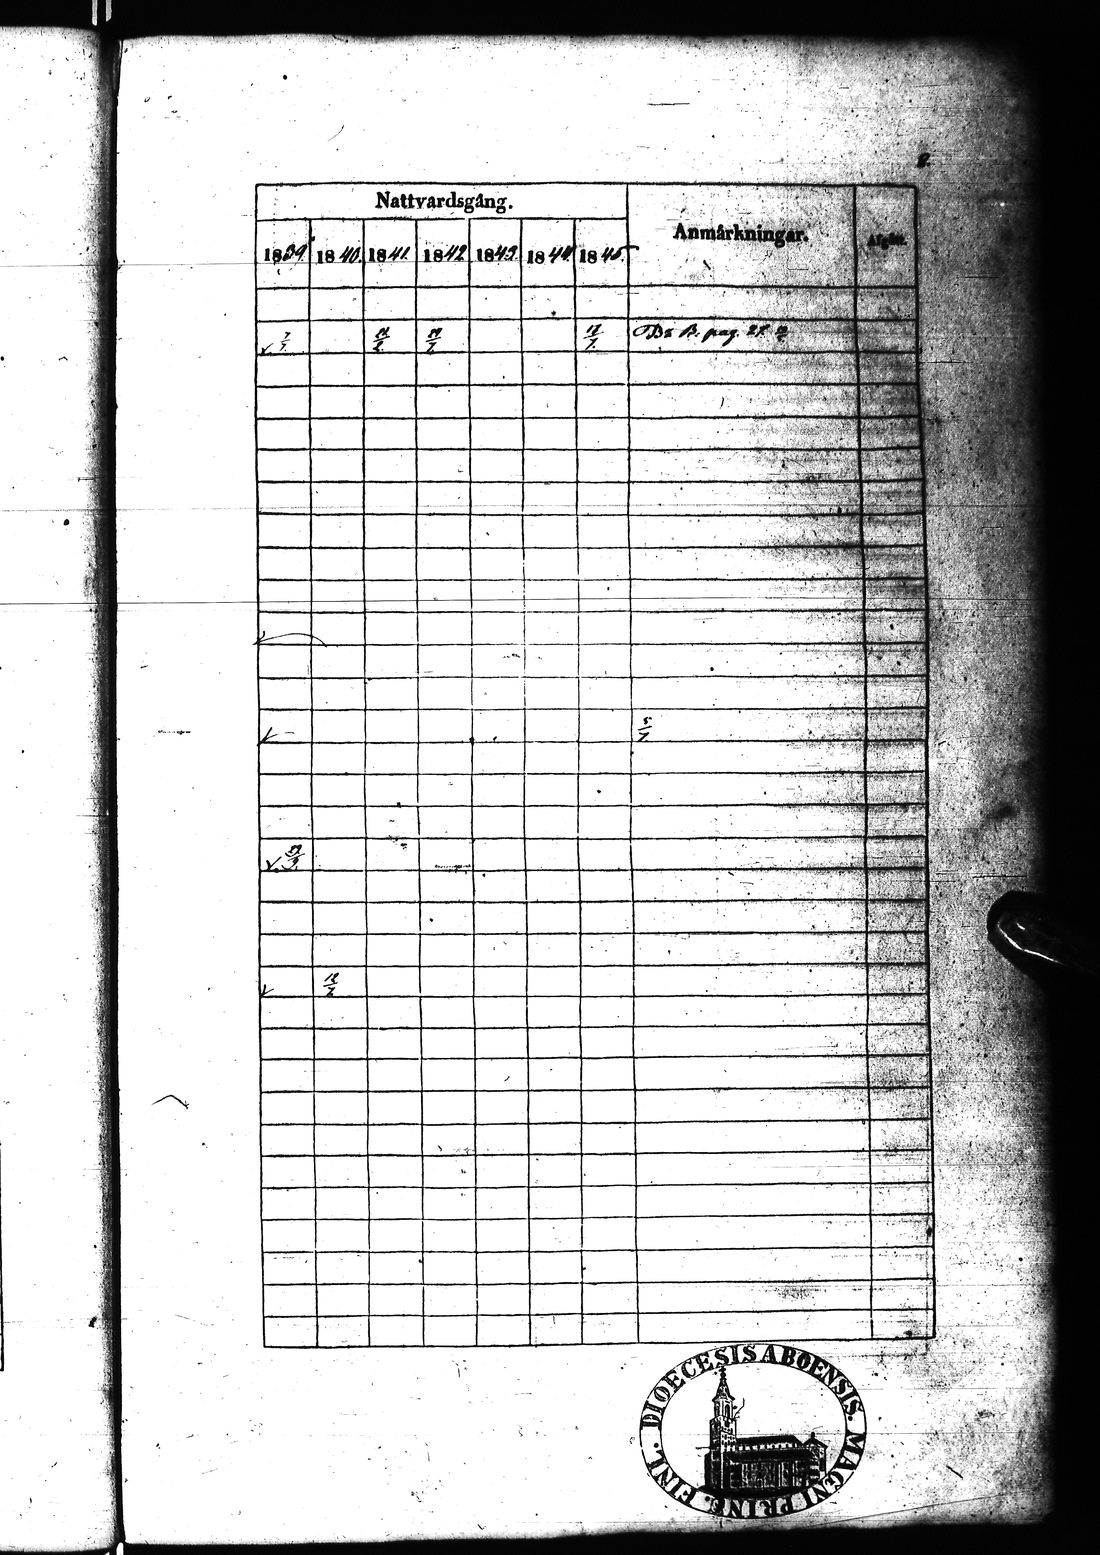 8.
Nattvardsgång. Anmärkningar. Afgått.
1839. 1840. 1841. 1842. 1843. 1844. 1845.
7/7. 18/7. B. pag. 27
5/7.
12/7
FINL. DIOECESIS ABOENSIS. MAGNI PRINC.